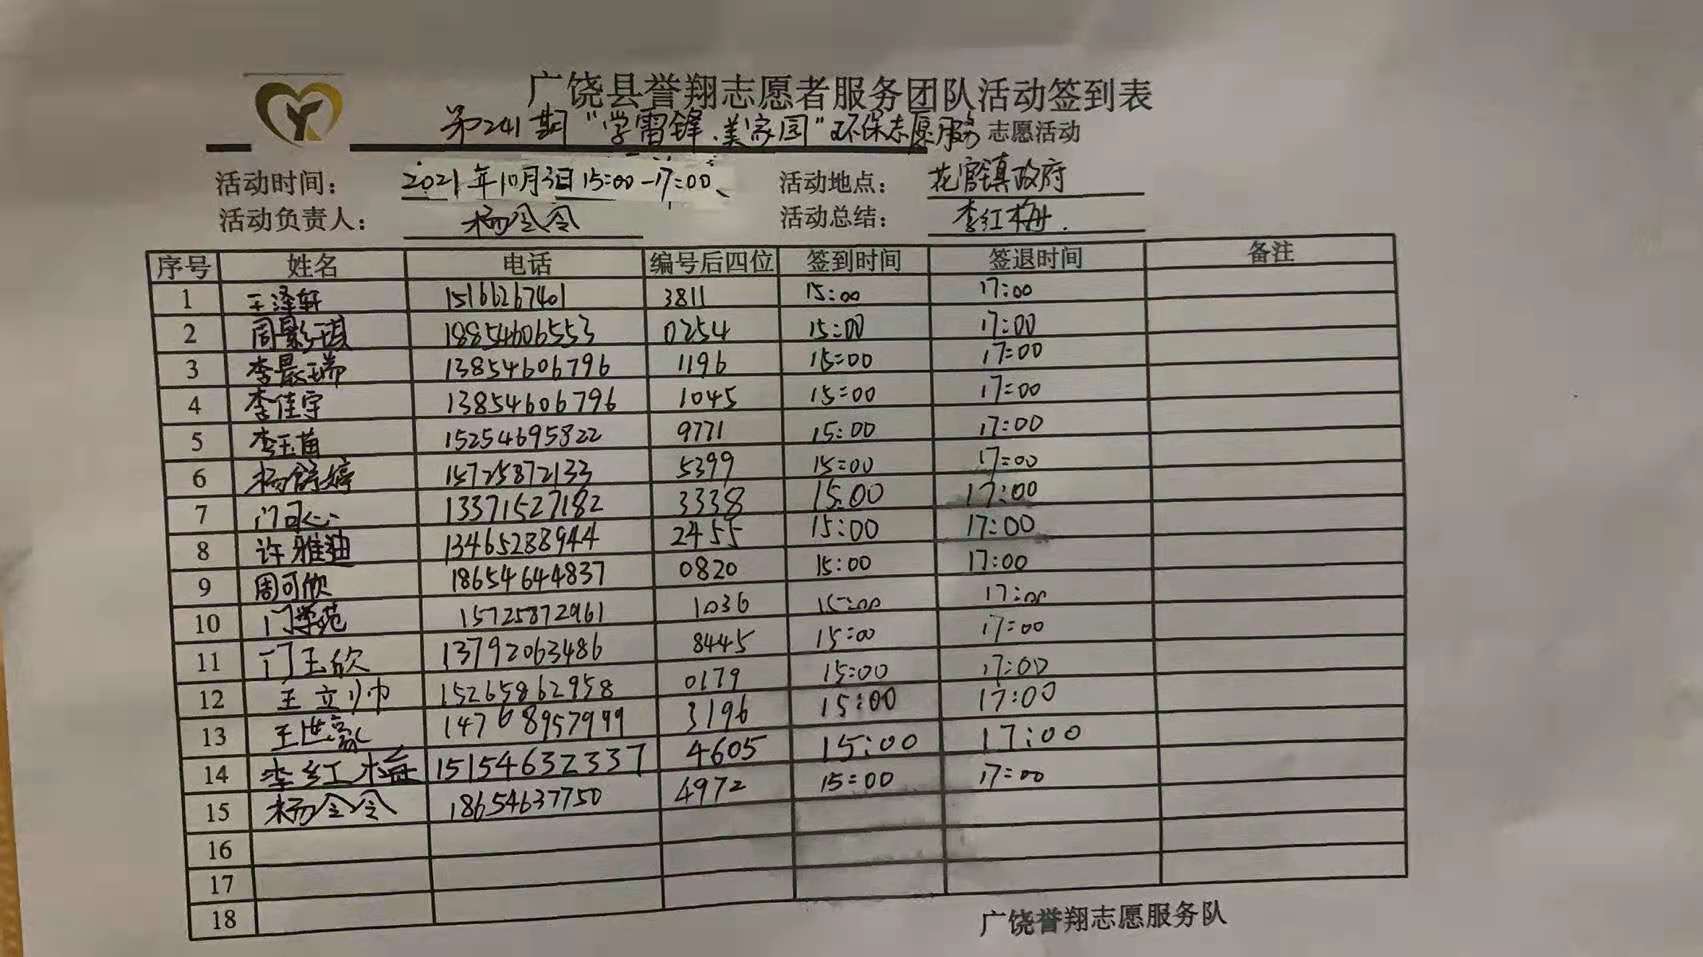 广饶县誉翔志愿者服务团队活动签到表
第241期"学雷锋.美家园"环保志愿服务 志愿活动
活动时间： 2021年10月3日15:00-17:00、 活动地点： 花官镇政府
活动负责人： 杨令令 活动总结： 李红梅.
序号 姓名 电话 编号后四位 签到时间 签退时间 备注
1 王泽轩 15166267401 3811 15:00 17:00
2 周影琪 18854606553 0254 15:00 17:00
3 李晨瑞 13854606796 1196 15:00 17:00
4 李佳宇 13854606796 1045 15:00 17:00
5 李玉苗 15254695822 9771 15:00 17:00
6 杨舒婷 15725872133 5399 15:00 17:00
7 门可心 13371527182 3338 15:00 17:00
8 许雅迪 13465288944 2455 15:00 17:00
9 周可欣 18654644837 0820 15:00 17:00
10 门学苑 15725872961 1036 15:00 17:00
11 门玉欣 13792063486 8445 15:00 17:00
12 王立帅 15265862958 0179 15:00 17:00
13 王世 14768957999 3196 15:00 17:00
14 李红梅 15154632337 4605 15:00 17:00
15 杨令令 18654637750 4972 15:00 17:00
16
17
18
广饶誉翔志愿服务队